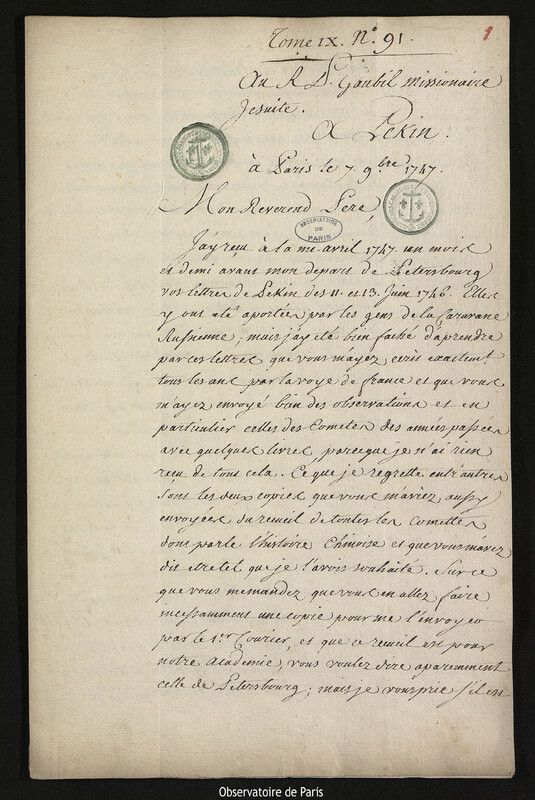 Tome IX. N.° 91.
1
Au R. P. Gaubil Missionaire
Jesuite.
A Pekin.
à Paris le 7. 9.bre 1747.
Mon Reverend Pere,
OBSERVATOIRE
DE
PARIS
J'ay reçu à la mi-avril 1747 un mois
et demi avant mon depart de Petersbourg
vos lettres de Pekin des 11. et 13. Juin 1746. Elles
y ont été aportées par les gens de la Caravane
Russienne; mais j'ay été bien faché d'aprendre
par ces lettres que vous m'ayez ecrit exactemt
tous les ans par la voye de france et que vous
m'ayez envoyé bien des observations et en
particulier celles des Cometes des années passées
avec quelques livres, parceque je n'ai rien
reçu de tout cela. Ce que je regrette entr'autres
sont les deux copies que vous m'aviez aussy
envoyées du recueil de toutes les Cometes
dont parle l'histoire Chinoise et que vous m'avez
dit etre tel que je l'avois souhaité. Sur ce
que vous me mandez que vous en allez faire
incessamment une copie pour me l'envoyer
par le 1.er Courier, et que ce recueil est pour
notre Academie, vous voulez dire aparemment
celle de Petersbourg; mais je vous prie s'il en
Observatoire de Paris